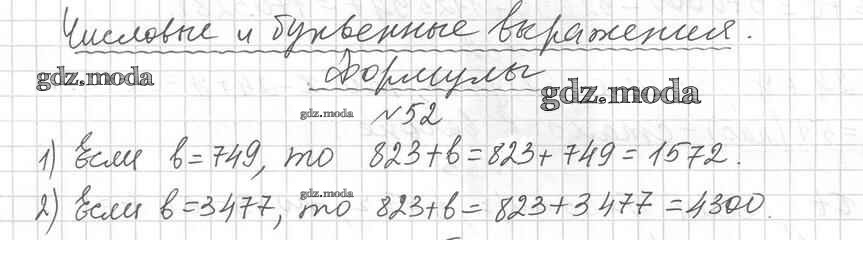 Числовые и буквенные выражения.
gdz.moda
Формулы
gdz.moda
gdz.moda
№52
1) Если b=749, то 823+b=823+749=1572.
gdz.moda
2) Если b=3477, то 823+b=823+3477=4300.